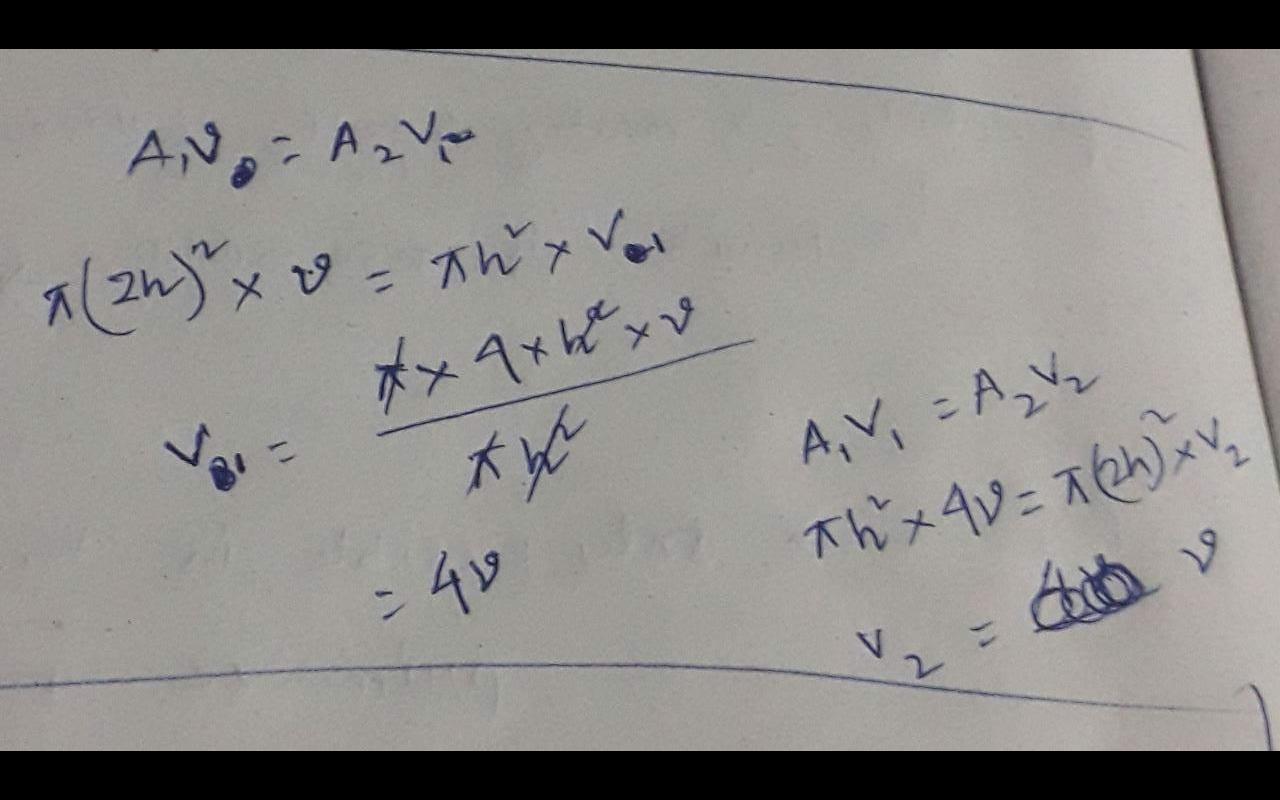 A₁v = A₂V₁
π(2r)² × v = πr² × V₁
V₁ = π × 4 × r² × v / πr²
= 4v
A₁V₁ = A₂V₂
πr² × 4v = π(2r)² × V₂
V₂ = v